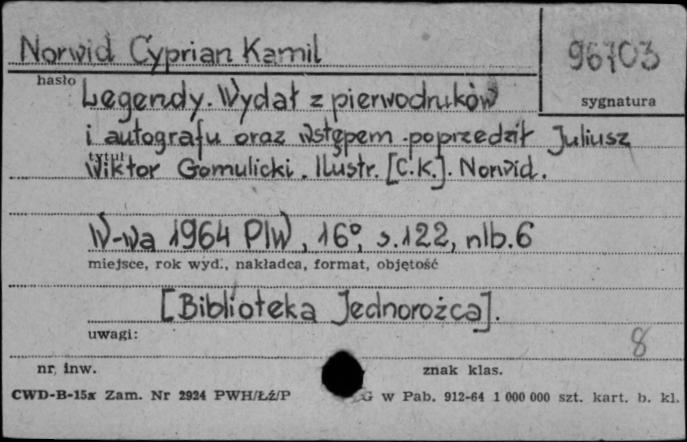 Norwid Cyprian Kamil
96703
hasło
sygnatura
Legendy. Wydał z pierwodruków
i autografu oraz wstępem poprzedził Juliusz
tytuł
Wiktor Gomulicki. Ilustr. [C.K.]. Norwid.
W-wa 1964 PIW, 16°, s.122, nlb.6
miejsce, rok wyd., nakładca, format, objętość
[Biblioteka Jednorożca].
uwagi:
8
nr. inw.
znak klas.
CWD-B-15x Zam. Nr 2924 PWH/Łź/P G w Pab. 912-64 1 000 000 szt. kart. b. kl.